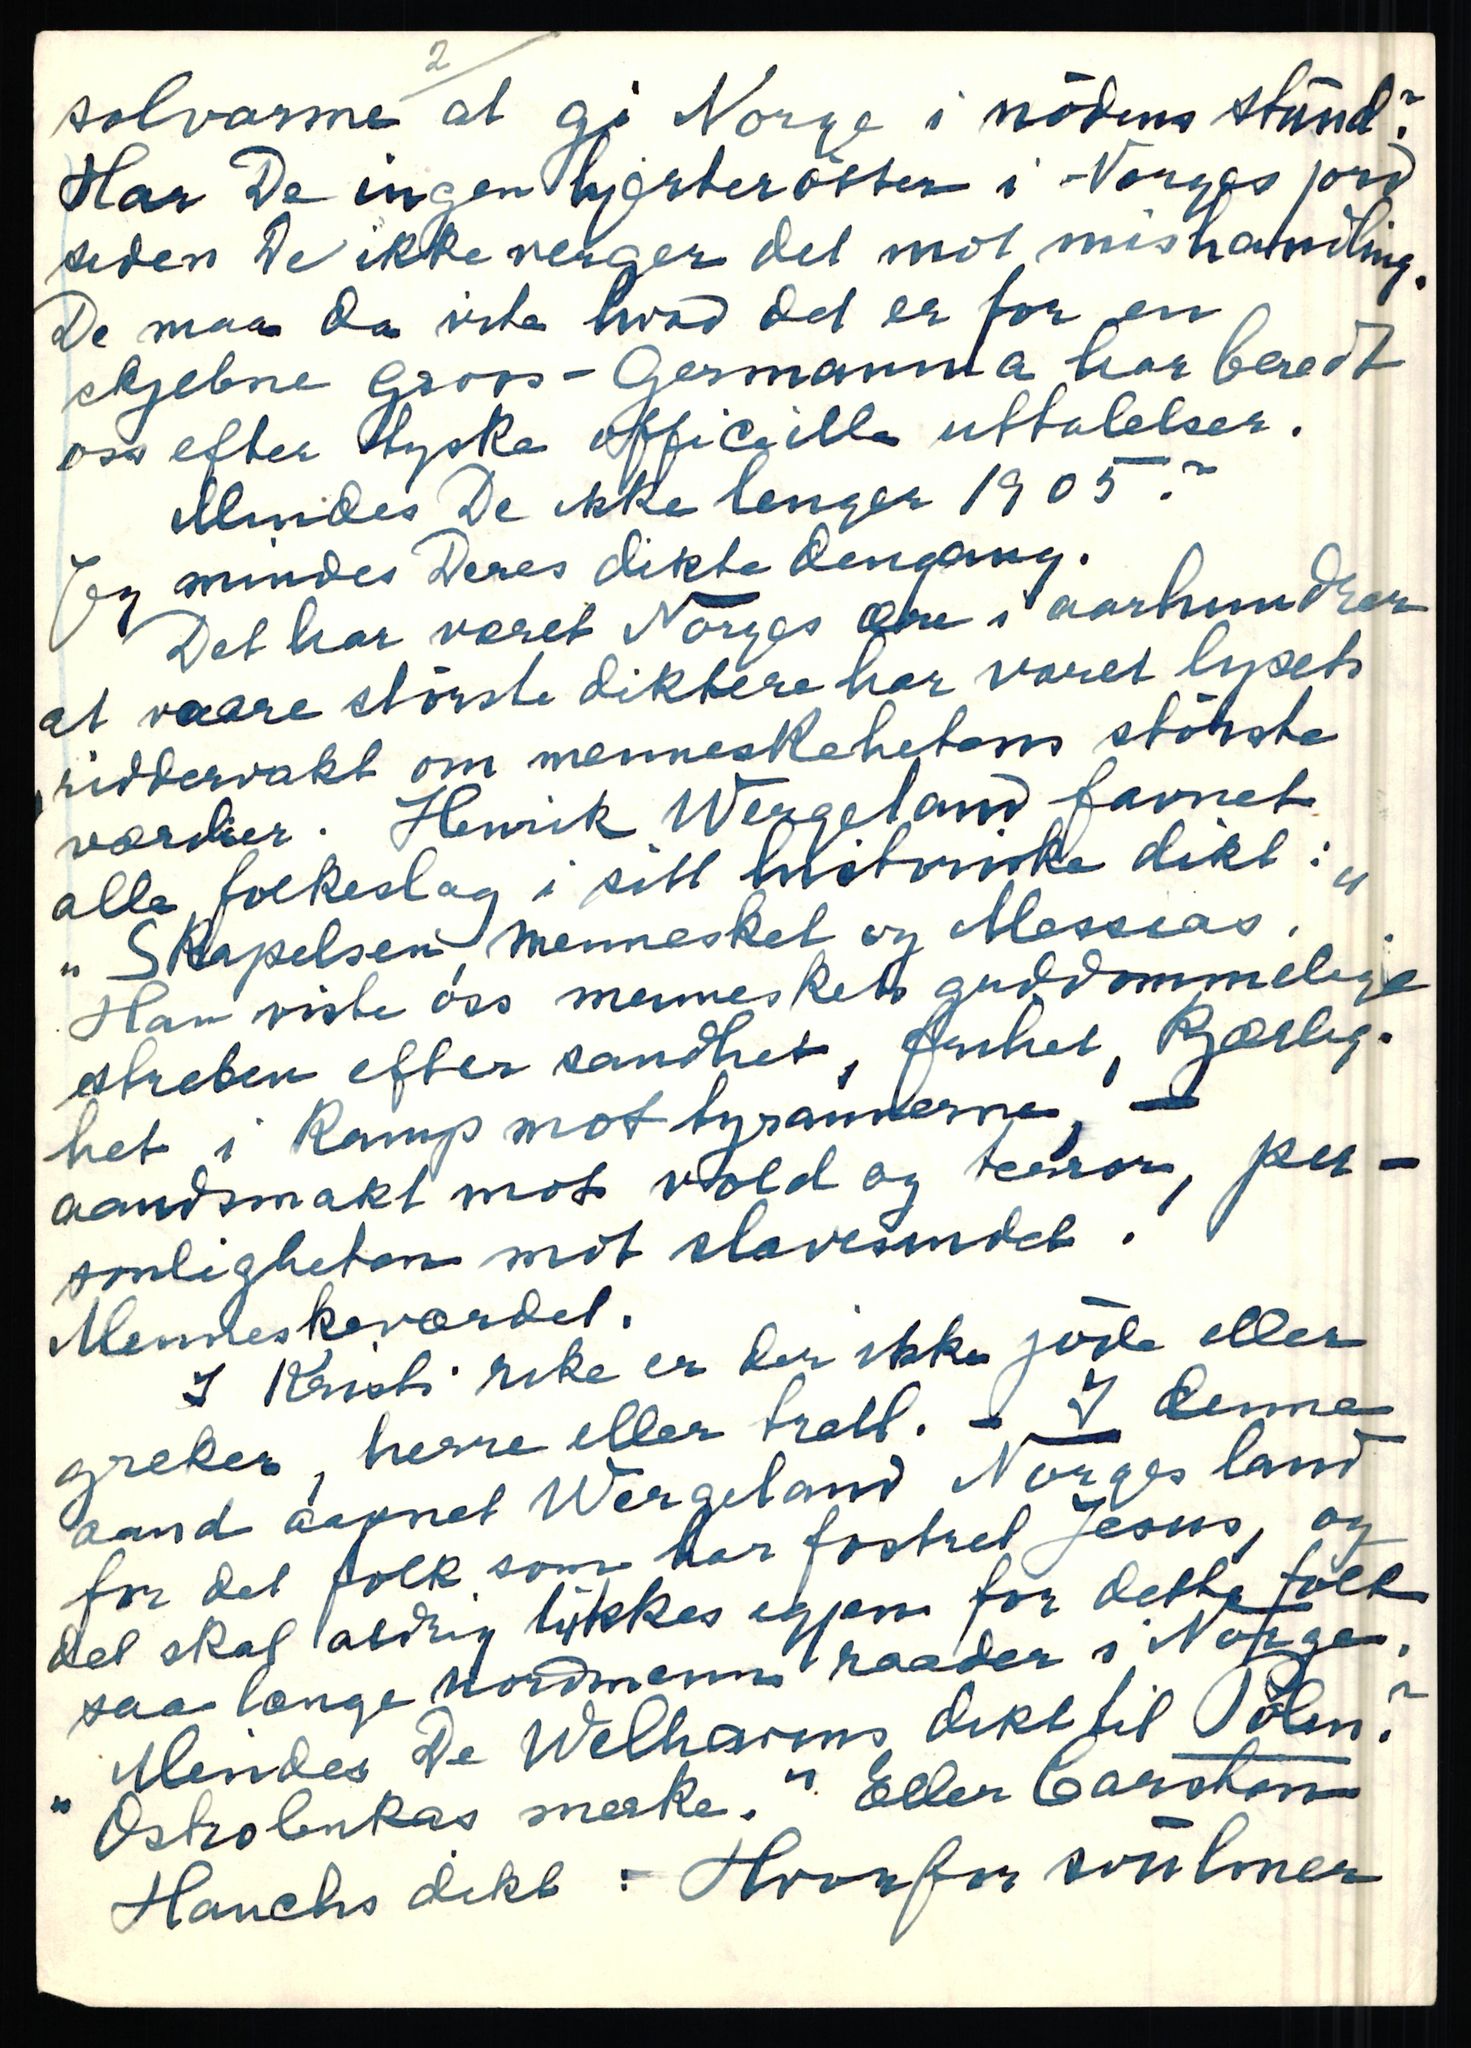 2
solvarme at gi Norge i nödens stund?
Har De ingen hjerterötter i Norges jord
siden De ikke verger det mot mishandling.
De maa da vite hvad det er for en
skjebne Groos-Germannia har beredt
oss efter tyske officielle uttalelser.
Mindes De ikke lenger 1905?
Jeg mindes Deres dikte dengang.
Det har været Norges ære i aarhundrer
at vaare störste diktere har været lysets
riddervakt om menneskehetens störste
værdier. Henrik Wergeland favnet
alle folkeslag i sitt historiske dikt:
"Skapelsen, mennesket og Messias."
Han viste oss menneskets guddommelige
streben efter sandhet, frihet, kjærlig-
het i kamp mot tyrannerne, —
aandsmakt mot vold og terror, per-
sonligheten mot slavesindet.
Menneskeværdet.
I Kristi rike er der ikke jöde eller
greker, herre eller trell. - I denne
aand aapnet Wergeland Norges land
for det folk som har fostret Jesus, og
det skal aldrig lukkes igjen for dette folk
saa lenge nordmenn raader i Norge.
Mindes De Welhavens dikt til Polen?
"Ostrolenkas merke." Eller Carsten
Hauchs dikt: - Hvorfor svulmer